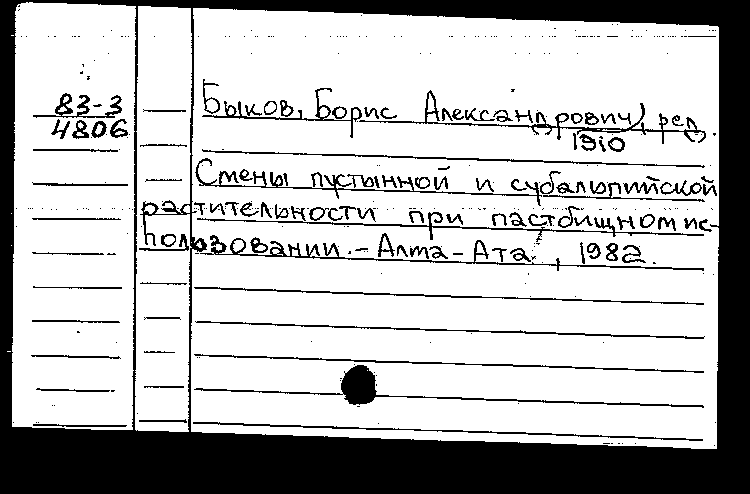 83-3
4806
Быков, Борис Александрович, ред.
1910
Смены пустынной и субальпийской
растительности при пастбищном ис-
пользовании. - Алма-Ата, 1982.